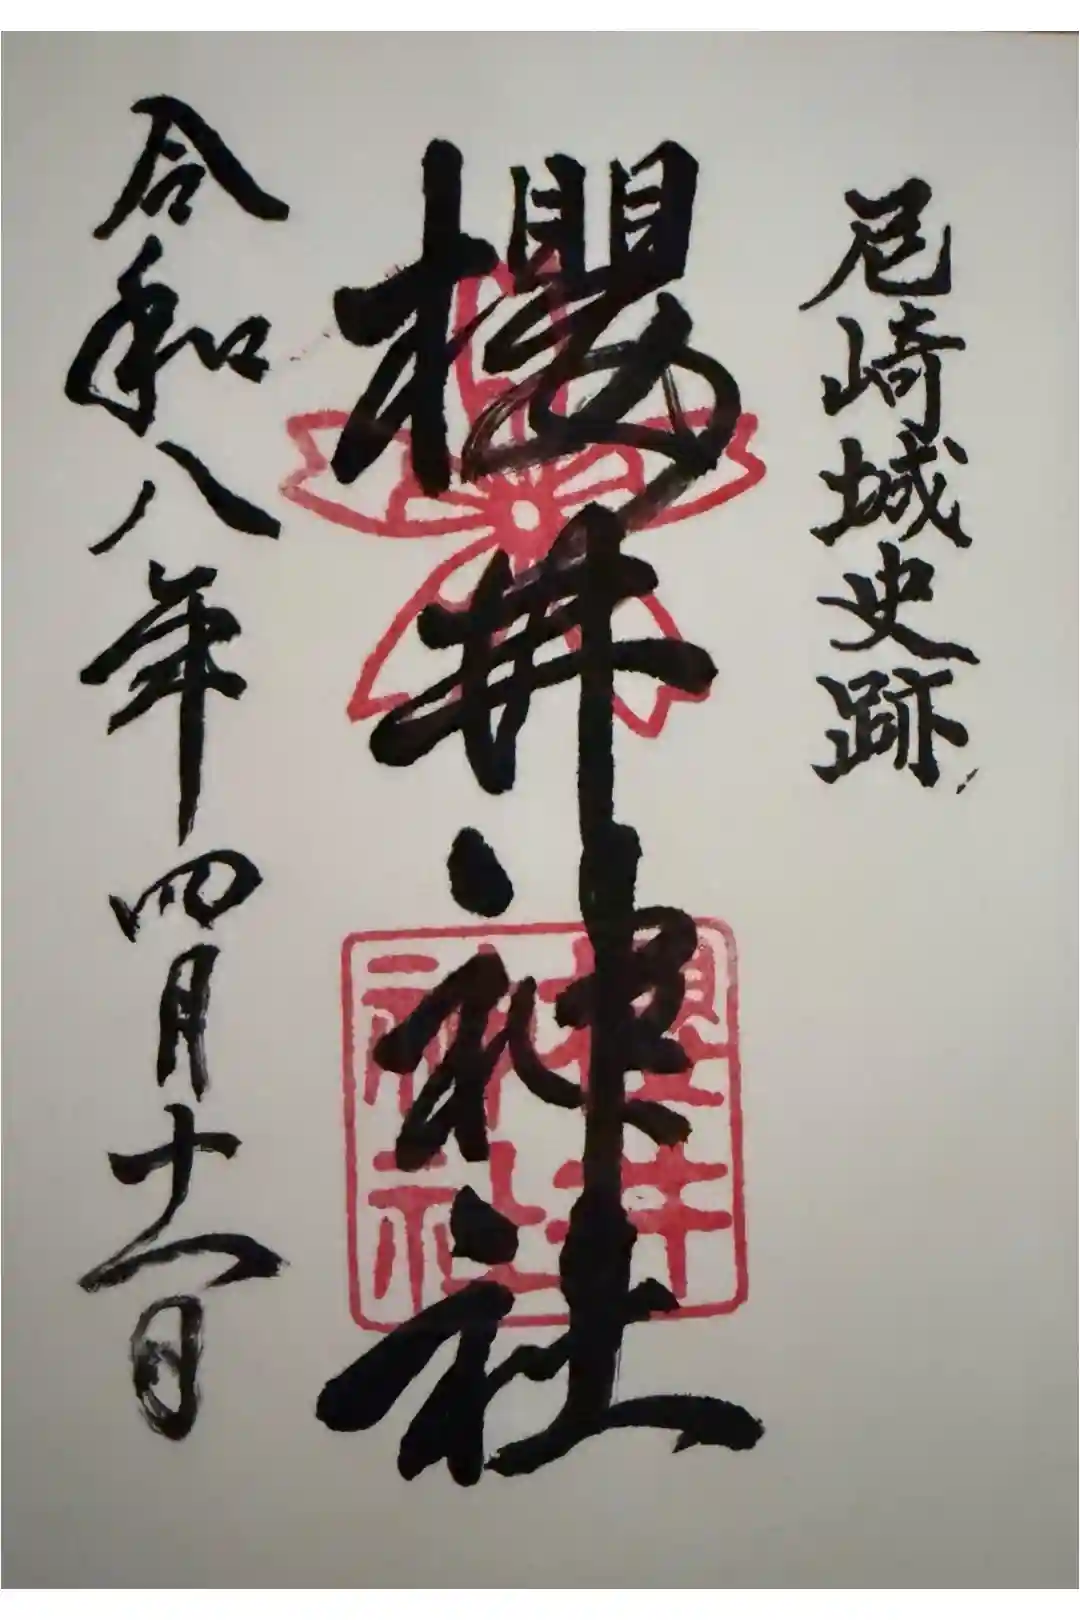 尼崎城史跡
櫻井神社
櫻井
神社
令和八年四月十一日